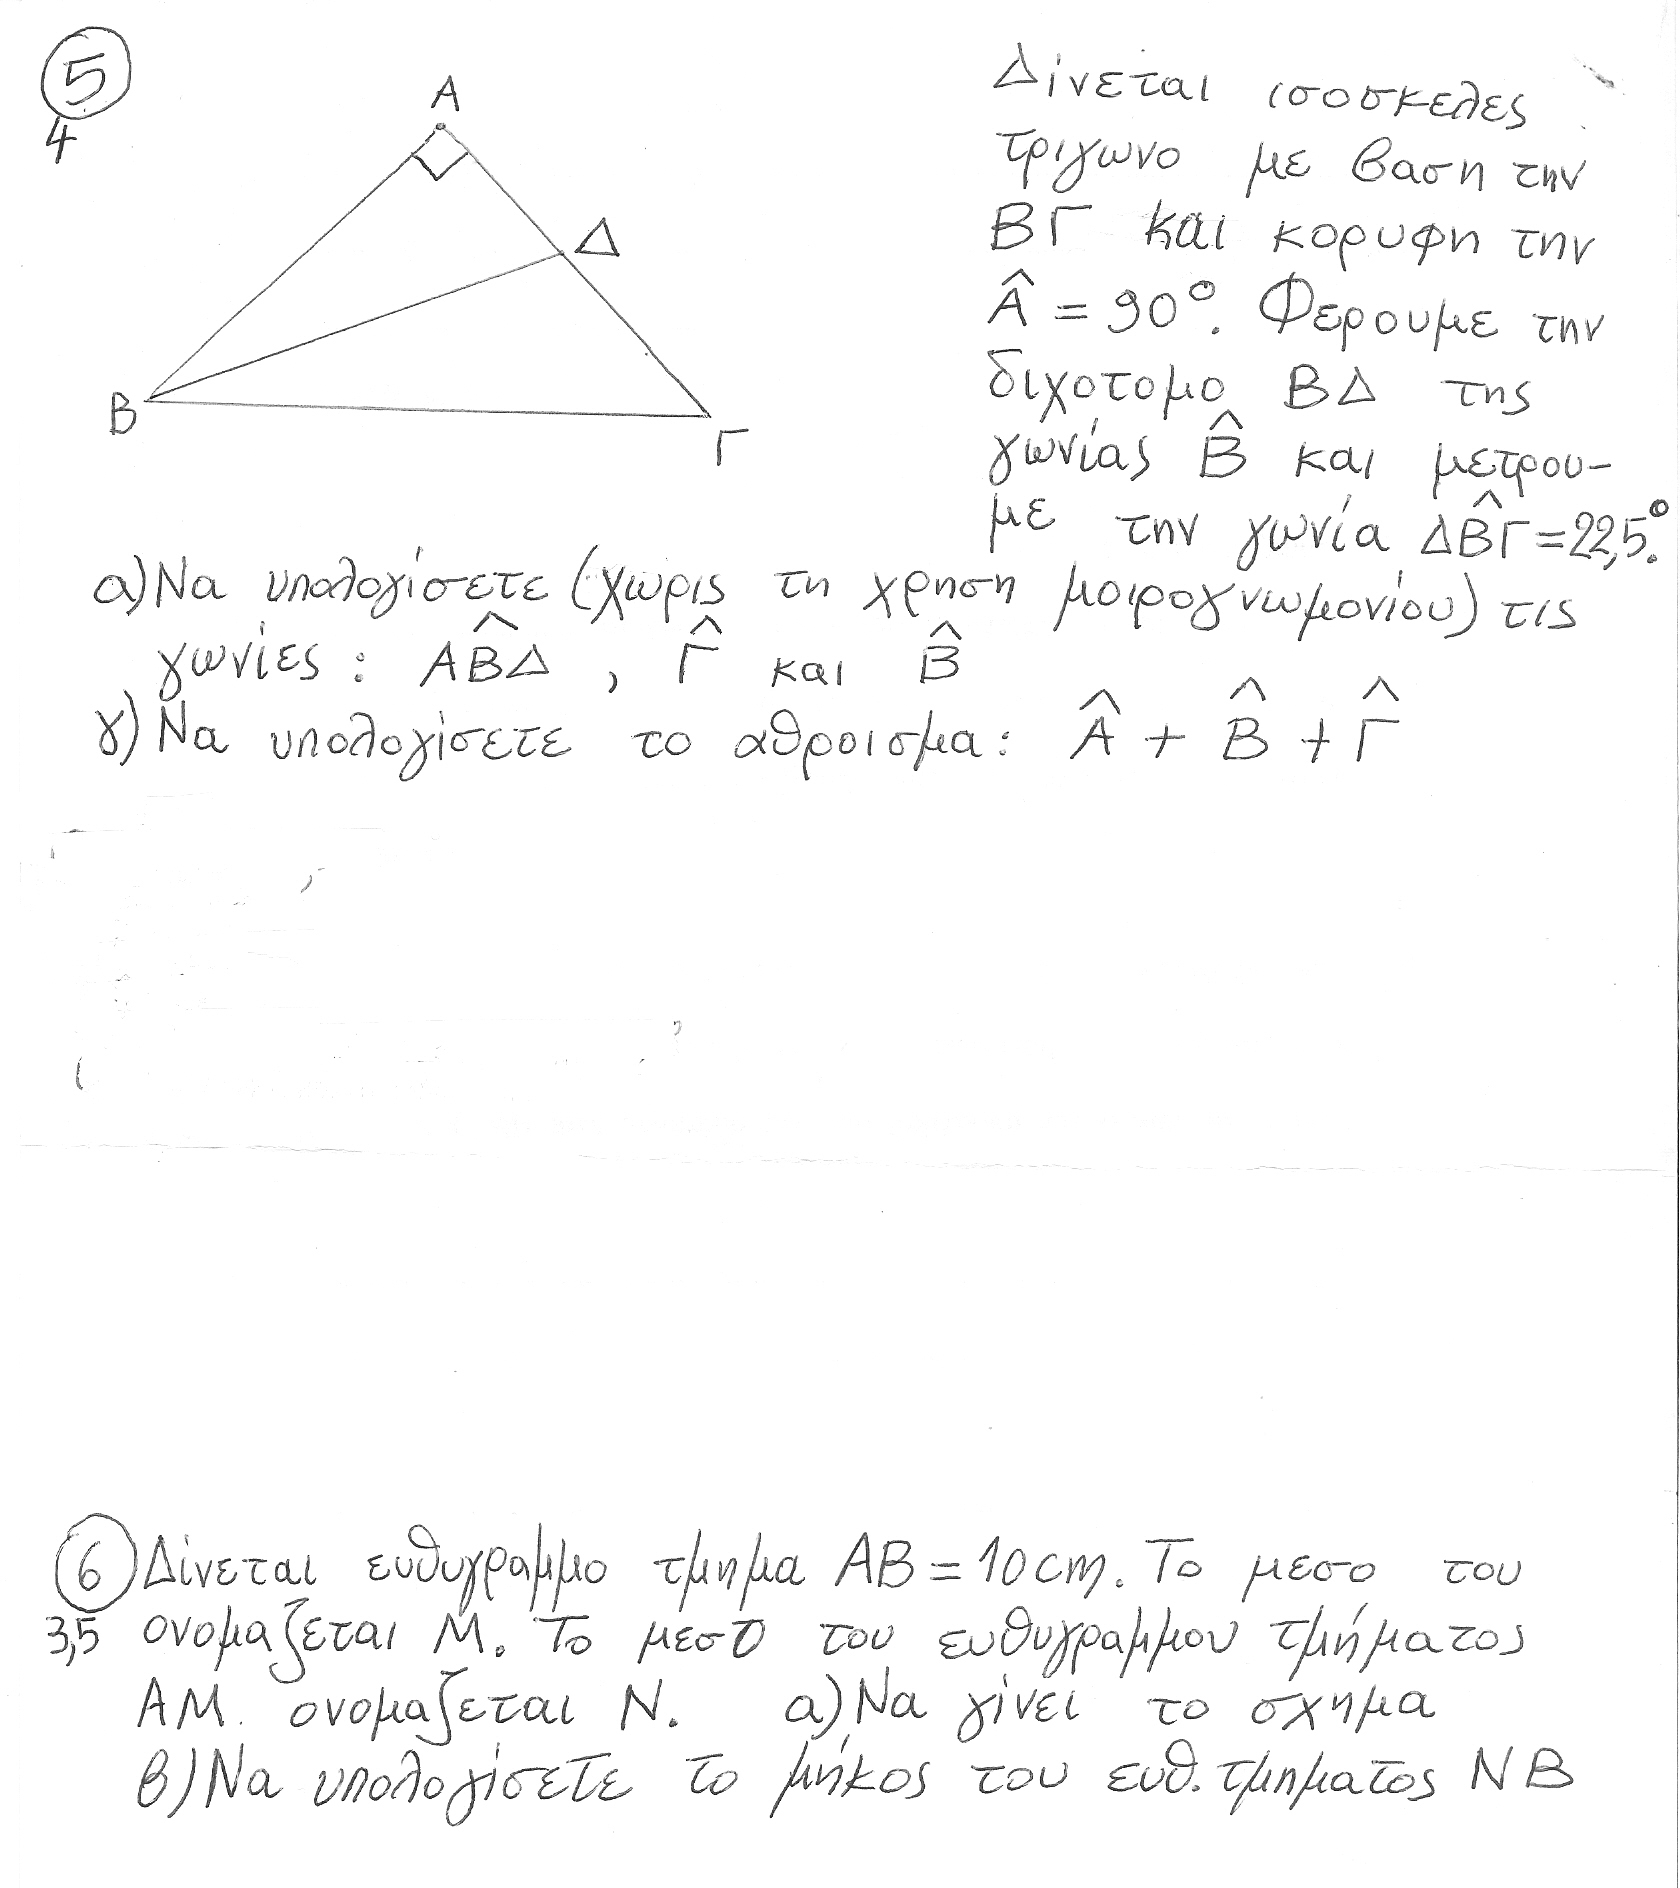 5
4
Α
Δ
Β
Γ
Δίνεται ισοσκελες
τριγωνο με βαση την
ΒΓ και κορυφη την
Â = 90°. Φερουμε την
διχοτομο ΒΔ της
γωνίας B̂ και μετρου-
με την γωνία ΔB̂Γ=22,5°.
α) Να υπολογίσετε (χωρις τη χρηση μοιρογνωμονίου) τις
γωνίες : ΑB̂Δ , Γ̂ και B̂
γ) Να υπολογίσετε το αθροισμα: Â + B̂ + Γ̂
6 Δίνεται ευθυγραμμο τμημα ΑΒ = 10cm. Το μεσο του
3,5 ονομαζεται Μ. Το μεσο του ευθυγραμμου τμήματος
ΑΜ. ονομαζεται Ν. α) Να γίνει το σχημα
β) Να υπολογίσετε το μήκος του ευθ. τμηματος ΝΒ